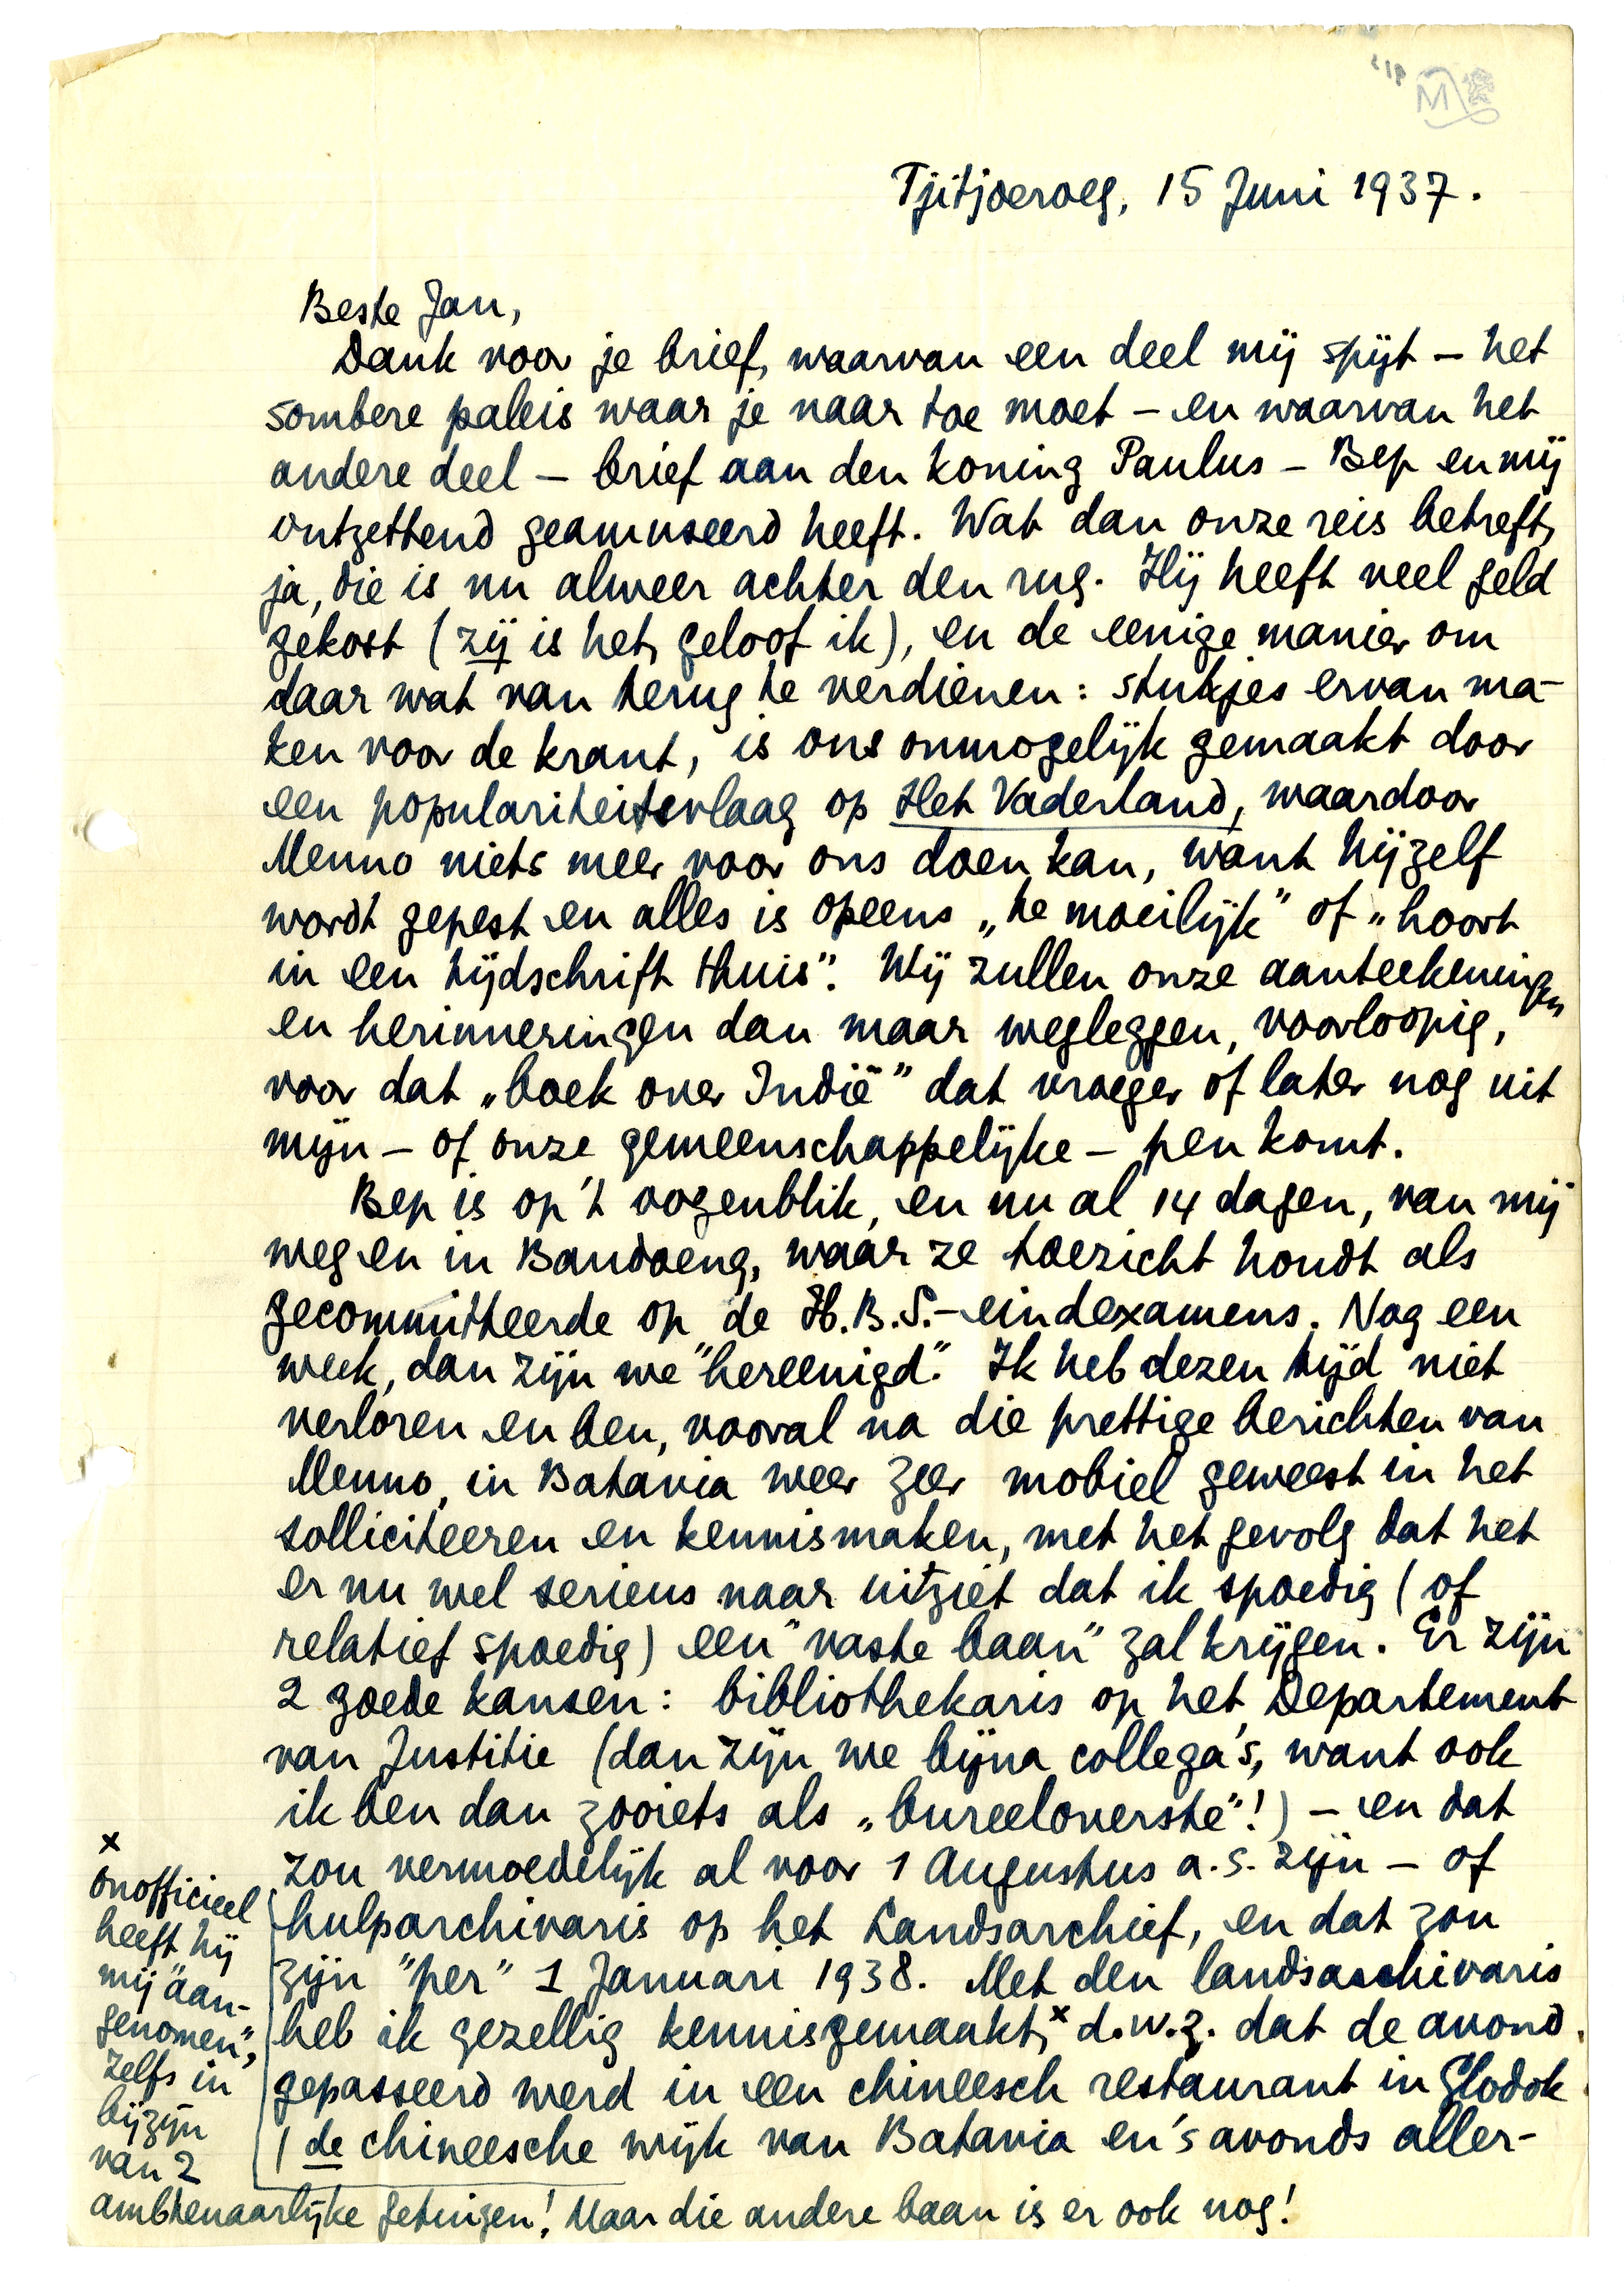 Tjitjoeroeg, 15 Juni 1937.
Beste Jan,
Dank voor je brief, waarvan een deel mij spijt – het
sombere paleis waar je naar toe moet – en waarvan het
andere deel – brief aan den koning Paulus – Bep en mij
ontzettend geamuseerd heeft. Wat dan onze reis betreft,
ja, die is nu alweer achter den rug. Hij heeft veel geld
gekost (zij is het, geloof ik), en de eenige manier om
daar wat van terug te verdienen: stukjes ervan ma-
ken voor de krant, is ons onmogelijk gemaakt door
een populariteitsvlaag op Het Vaderland, waardoor
Menno niets meer voor ons doen kan, want hijzelf
wordt gepest en alles is opeens „te moeilijk” of „hoort
in een tijdschrift thuis”. Wij zullen onze aanteekeningen
en herinneringen dan maar wegleggen, voorloopig,
voor dat „boek over Indië” dat vroeger of later nog uit
mijn – of onze gemeenschappelijke – pen komt.
Bep is op 't oogenblik, en nu al 14 dagen, van mij
weg en in Bandoeng, waar ze toezicht houdt als
gecommitteerde op de H.B.S.-eindexamens. Nog een
week, dan zijn we "hereenigd". Ik heb dezen tijd niet
verloren en ben, vooral na die prettige berichten van
Menno, in Batavia weer zeer mobiel geweest in het
solliciteeren en kennismaken, met het gevolg dat het
er nu wel serieus naar uitziet dat ik spoedig (of
relatief spoedig) een "vaste baan" zal krijgen. Er zijn
2 goede kansen: bibliothekaris op het Departement
van Justitie (dan zijn we bijna collega's, want ook
ik ben dan zooiets als „bureeloverste”!) – en dat
zou vermoedelijk al voor 1 Augustus a.s. zijn – of
hulparchivaris op het Landsarchief, en dat zou
zijn "per" 1 Januari 1938. Met den landsarchivaris
heb ik gezellig kennisgemaakt,x d.w.z. dat de avond
gepasseerd werd in een chineesch restaurant in Glodok
(de chineesche wijk van Batavia en 's avonds aller-
x
onofficieel
heeft hij
mij "aan-
genomen",
zelfs in
bijzijn
van 2
ambtenaarlijke getuigen! Maar die andere baan is er ook nog!